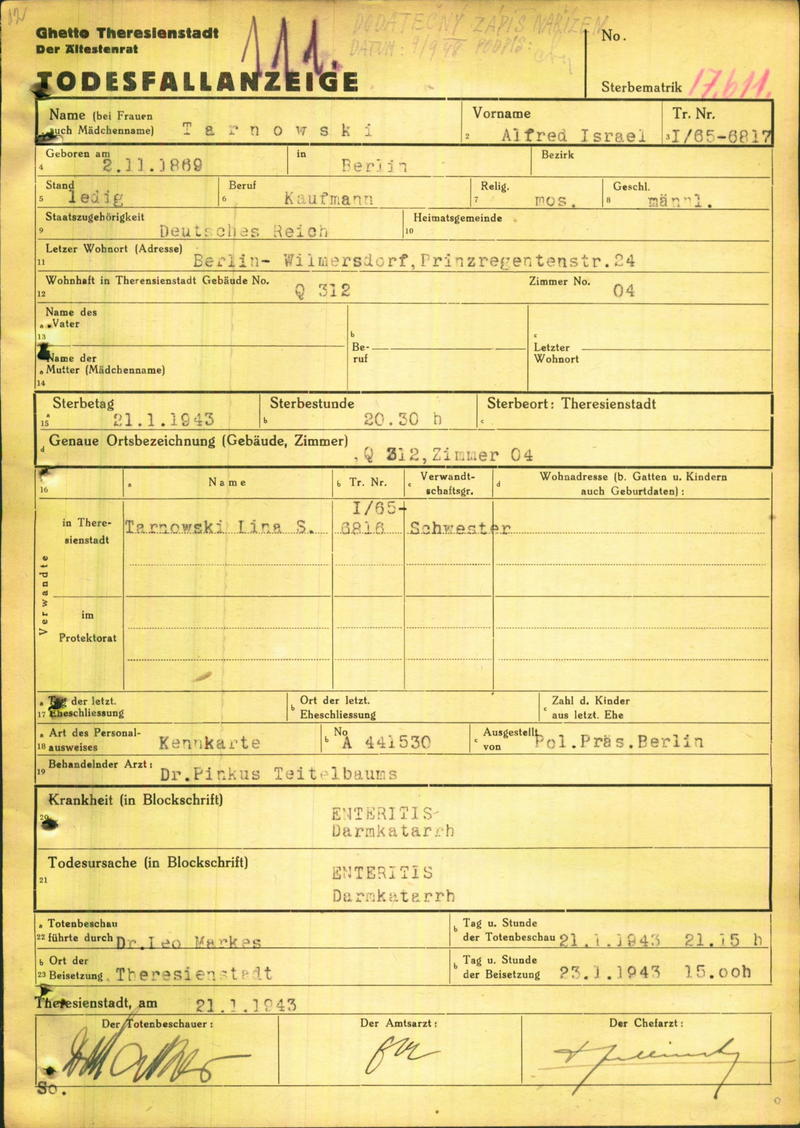 Ghetto Theresienstadt
Der Ältestenrat
111.
DODATEČNÝ ZÁPIS NAŘÍZEN
DATUM: 9/9 48 PODPIS:
TODESFALLANZEIGE
No.
Sterbematrik 17.611.
Name (bei Frauen auch Mädchenname) Tarnowski
Vorname 2 Alfred Israel
Tr. Nr. 3 I/65-6817
Geboren am 4 2.11.1869
in Berlin
Bezirk
Stand 5 ledig
Beruf 6 Kaufmann
Relig. 7 mos.
Geschl. 8 männl.
Staatszugehörigkeit 9 Deutsches Reich
Heimatsgemeinde 10
Letzer Wohnort (Adresse) 11 Berlin- Wilmersdorf,Prinzregentenstr.24
Wohnhaft in Therensienstadt Gebäude No. 12 Q 312
Zimmer No. 04
Name des
a Vater
13
b
Be-
ruf
c
Letzter
Wohnort
Name der
a Mutter (Mädchenname)
14
Sterbetag a 15 21.1.1943
Sterbestunde b 20.30 h
Sterbeort: Theresienstadt c
d Genaue Ortsbezeichnung (Gebäude, Zimmer) ,Q 312,Zimmer 04
16
a Name
b Tr. Nr.
c Verwandt-
schaftsgr.
d Wohnadresse (b. Gatten u. Kindern
auch Geburtdaten) :
Verwandte
in There-
sienstadt
Tarnowski Lina S. I/65-
6816 Schwester
im
Protektorat
a Tag der letzt.
17 Eheschliessung
b Ort der letzt.
Eheschliessung
c Zahl d. Kinder
aus letzt. Ehe
a Art des Personal-
18 ausweises Kennkarte
b No A 441530
c Ausgestellt
von Pol.Präs.Berlin
19 Behandelnder Arzt: Dr.Pinkus Teitelbaums
Krankheit (in Blockschrift)
20
ENTERITIS-
Darmkatarrh
Todesursache (in Blockschrift)
21
ENTERITIS
Darmkatarrh
a Totenbeschau
22 führte durch Dr.Leo Markes
b Tag u. Stunde
der Totenbeschau 21.1.1943 21.15 h
b Ort der
23 Beisetzung Theresienstadt
b Tag u. Stunde
der Beisetzung 23.1.1943 15.ooh
Theresienstadt, am 21.1.1943
Der Totenbeschauer:
Der Amtsarzt:
Der Chefarzt:
So.